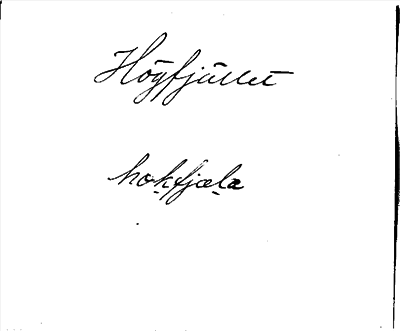 Högfjället
hok̠fjæl̠a